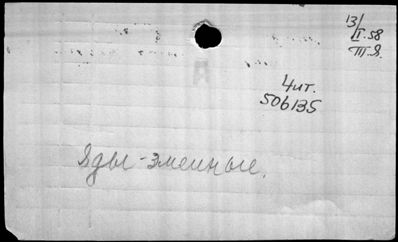 13/
II.58
III.Я.
4ит.
506135
Яды-змеиные.